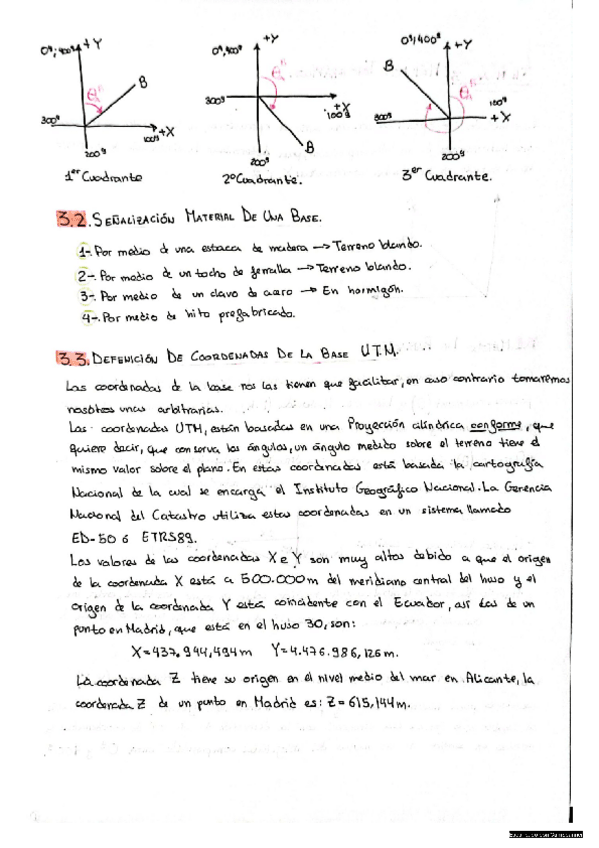 0ᵍ, 400ᵍ +Y
B
300ᵍ
100ᵍ +X
200ᵍ
1er Cuadrante
0ᵍ, 400ᵍ +Y
300ᵍ
+X
100ᵍ
B
200ᵍ
2º Cuadrante.
0ᵍ/400ᵍ +Y
B
100ᵍ
300ᵍ +X
200ᵍ
3er Cuadrante.
3.2. SEÑALIZACIÓN MATERIAL DE UNA BASE.
1-. Por medio de una estaca de madera → Terreno blando.
2-. Por medio de un tocho de ferralla → Terreno blando.
3-. Por medio de un clavo de acero → En hormigón.
4-. Por medio de hito prefabricado.
3.3. DEFENICIÓN DE COORDENADAS DE LA BASE U.T.M.
Las coordenadas de la base nos las tienen que facilitar, en caso contrario tomaremos
nosotros unas arbitrarias.
Las coordenadas UTM, están basadas en una Proyección cilíndrica conforme, que
quiere decir, que conserva los ángulos, un ángulo medido sobre el terreno tiene el
mismo valor sobre el plano. En estas coordenadas está basada la cartografía
Nacional de la cual se encarga el Instituto Geográfico Nacional. La Gerencia
Nacional del Catastro utiliza estas coordenadas en un sistema llamado
ED-50 ó ETRS89.
Los valores de las coordenadas X e Y son muy altos debido a que el origen
de la coordenada X está a 500.000m del meridiano central del huso y el
origen de la coordenada Y está coincidente con el Ecuador, así las de un
punto en Madrid, que está en el huso 30, son:
X=437.944,494m Y=4.476.986,126m.
La coordenada Z tiene su origen en el nivel medio del mar en Alicante, la
coordenada Z de un punto en Madrid es: Z=615,144m.